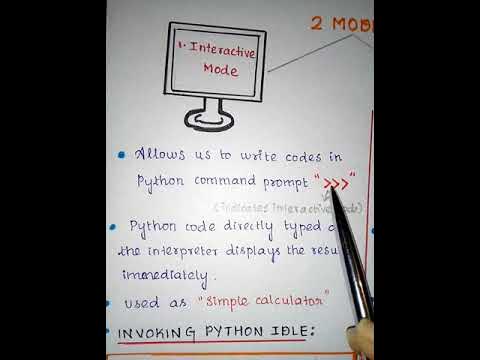 2 MOD
1. Interactive
Mode
• Allows us to write codes in
Python command prompt ">>>"
(indicates interactive mode)
• Python code directly typed
the interpreter displays the
immediately.
• used as "simple calculator"
INVOKING PYTHON IDLE: